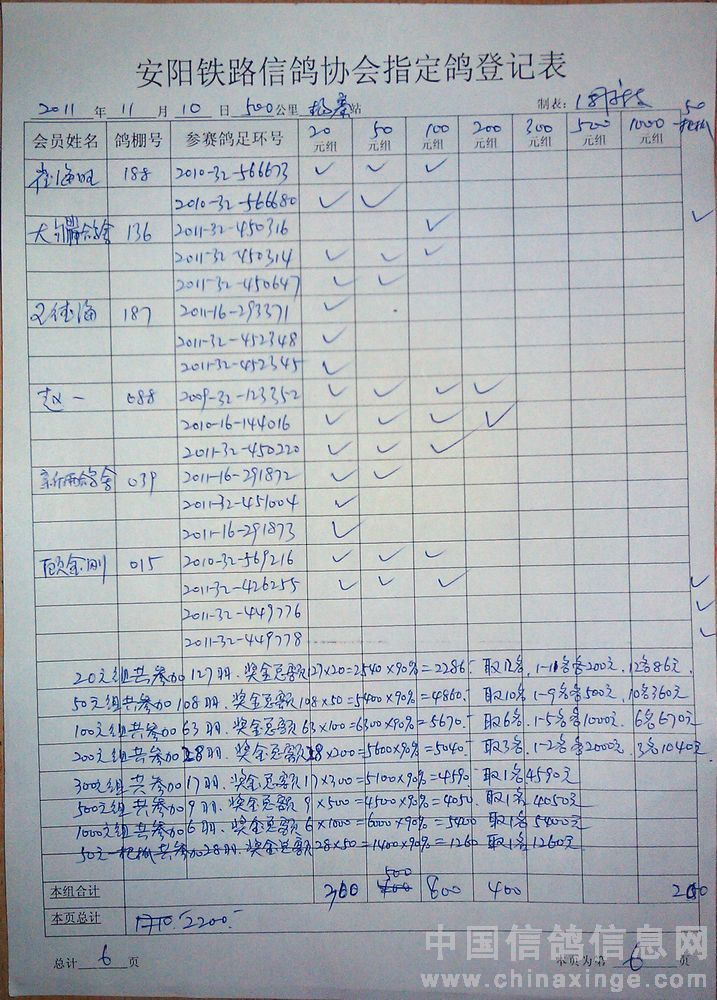 安阳铁路信鸽协会指定鸽登记表
2011 年 11 月 10 日 500公里 站 制表:
会员姓名 鸽棚号 参赛鸽足环号 20元组 50元组 100元组 200元组 300元组 500元组 1000元组 50一把抓
崔海旺 188 2010-32-566673 ✓ ✓ ✓
2010-32-566680 ✓ ✓
136 2011-32-450316 ✓ ✓
2011-32-450314 ✓ ✓ ✓
2011-32-450647 ✓ ✓
187 2011-16-293371 ✓
2011-32-452348 ✓
2011-32-452345 ✓
赵一 088 2009-32-123352 ✓ ✓ ✓ ✓
2010-16-144016 ✓ ✓ ✓ ✓
2011-32-450220 ✓ ✓ ✓
039 2011-16-291872 ✓ ✓
2011-32-451004 ✓
2011-16-291873 ✓
顾金刚 015 2010-32-569216 ✓ ✓ ✓
2011-32-426255 ✓ ✓ ✓ ✓
2011-32-449776 ✓
2011-32-449778 ✓
20元组共参加127羽.奖金总额127×20=2540×90%=2286.- 取12名.1-11名各200元.12名86元.
50元组共参加108羽.奖金总额108×50=5400×90%=4860.- 取10名.1-9名各500元.10名360元
100元组共参加63羽.奖金总额63×100=6300×90%=5670.- 取6名.1-5名各1000元.6名670元
200元组共参加28羽.奖金总额28×200=5600×90%=5040.- 取3名.1-2名各2000元.3名1040元
300元组共参加17羽.奖金总额17×300=5100×90%=4590.- 取1名4590元
500元组共参加9羽.奖金总额9×500=4500×90%=4050. 取1名4050元
1000元组共参加6羽.奖金总额6×1000=6000×90%=5400 取1名5400元
50元一把抓共参加28羽.奖金总额28×50=1400×90%=1260 取1名1260元
本组合计 300 500 800 400 200
本页总计 2200.-
总计 6 页 本页为第 6 页
中国信鸽信息网
www.chinaxinge.com